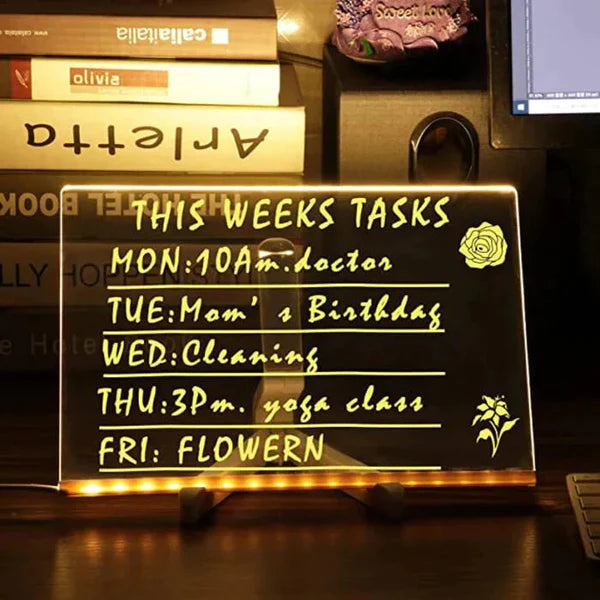 callaitalia
olivia
Arletta
THE HOTEL BOOK
LLY HOPPEN STYLE
Sweet Love
THIS WEEKS TASKS
MON:10Am.doctor
TUE:Mom's Birthdag
WED:Cleaning
THU:3Pm. yoga class
FRI: FLOWERN